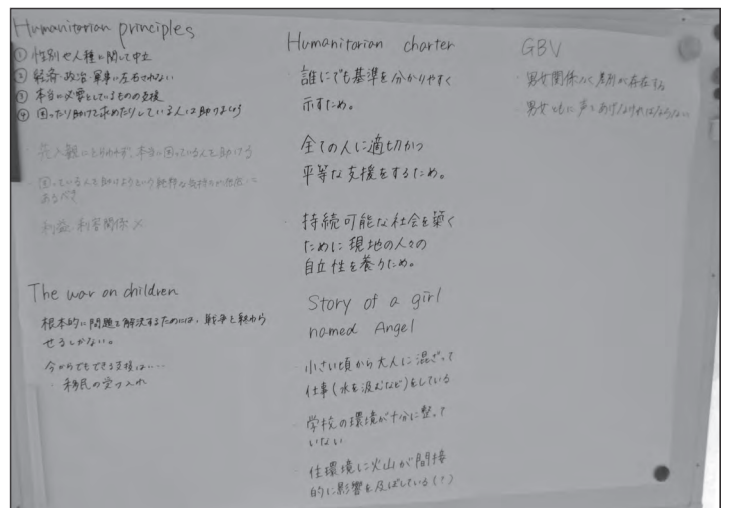 Humanitarian principles
① 性別や人種に関して中立
② 経済・政治・軍事に左右されない
③ 本当に必要としているものの支援
④ 困ったり助けて求めたりしている人は助けよう
・先入観にとらわれず、本当に困っている人を助ける
・困っている人を助けようという純粋な気持ちが根底に
あるべき
利益 利害関係 ×
The war on children
根本的に問題を解決するためには、戦争を終わら
せるしかない。
今からでもできる支援は……
・移民の受け入れ
Humanitarian charter
・誰にでも基準を分かりやすく
示すため。
・全ての人に適切かつ
平等な支援をするため。
・持続可能な社会を築く
ために現地の人々の
自立性を養うため。
Story of a girl
named Angel
・小さい頃から大人に混ざって
仕事(水を汲むなど)をしている
・学校の環境が十分に整って
いない
・住環境に火山が間接
的に影響を及ぼしている(?)
GBV
・男女関係なく差別が存在する
・男女ともに声をあげなければならない